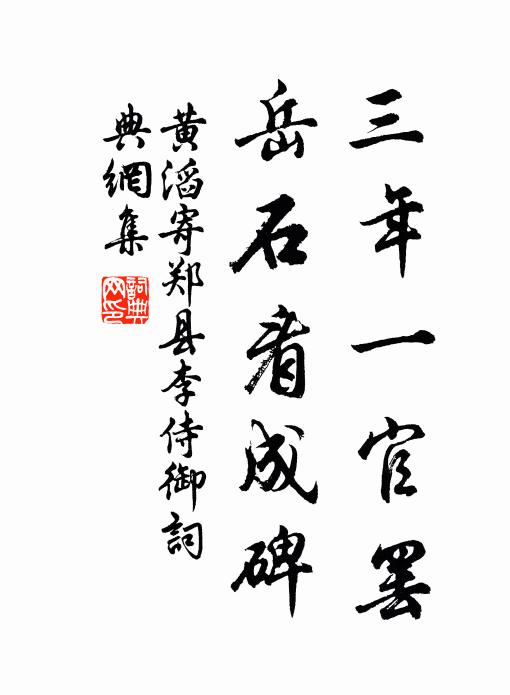 三年一官罢
岳石看成碑
黄滔寄郑县李侍御詞
典網集
詞典网印